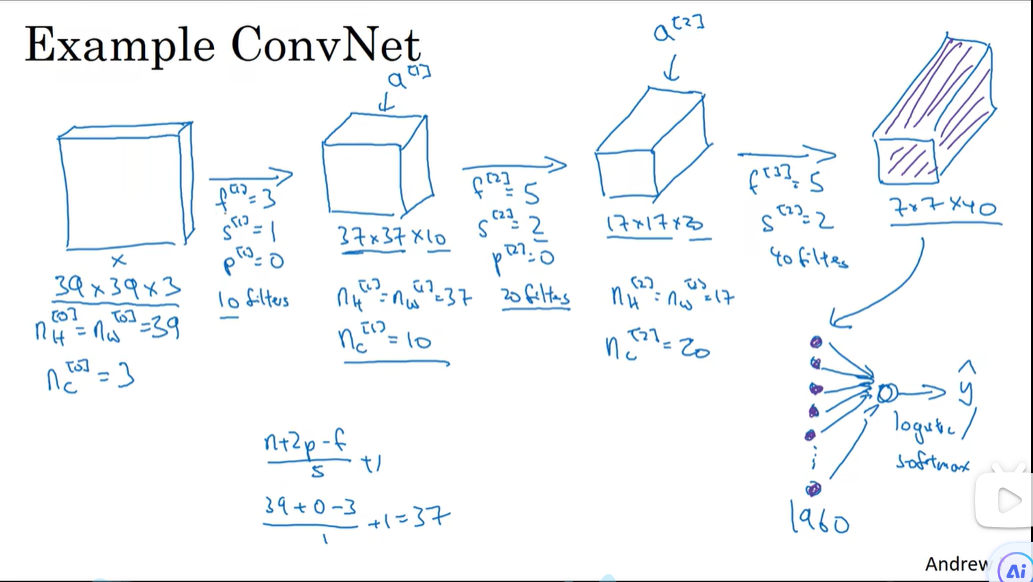 Example ConvNet
a^[1]
a^[2]
x
39 x 39 x 3
n_H^[0] = n_W^[0] = 39
n_C^[0] = 3
f^[1] = 3
s^[1] = 1
p^[1] = 0
10 filters
37 x 37 x 10
n_H^[1] = n_W^[1] = 37
n_C^[1] = 10
f^[2] = 5
s^[2] = 2
p^[2] = 0
20 filters
17 x 17 x 20
n_H^[2] = n_W^[2] = 17
n_C^[2] = 20
f^[3] = 5
s^[3] = 2
40 filters
7 x 7 x 40
1960
ŷ
logistic/
softmax
(n+2p-f)/s +1
(39+0-3)/1 +1 = 37
Andrew
Ai